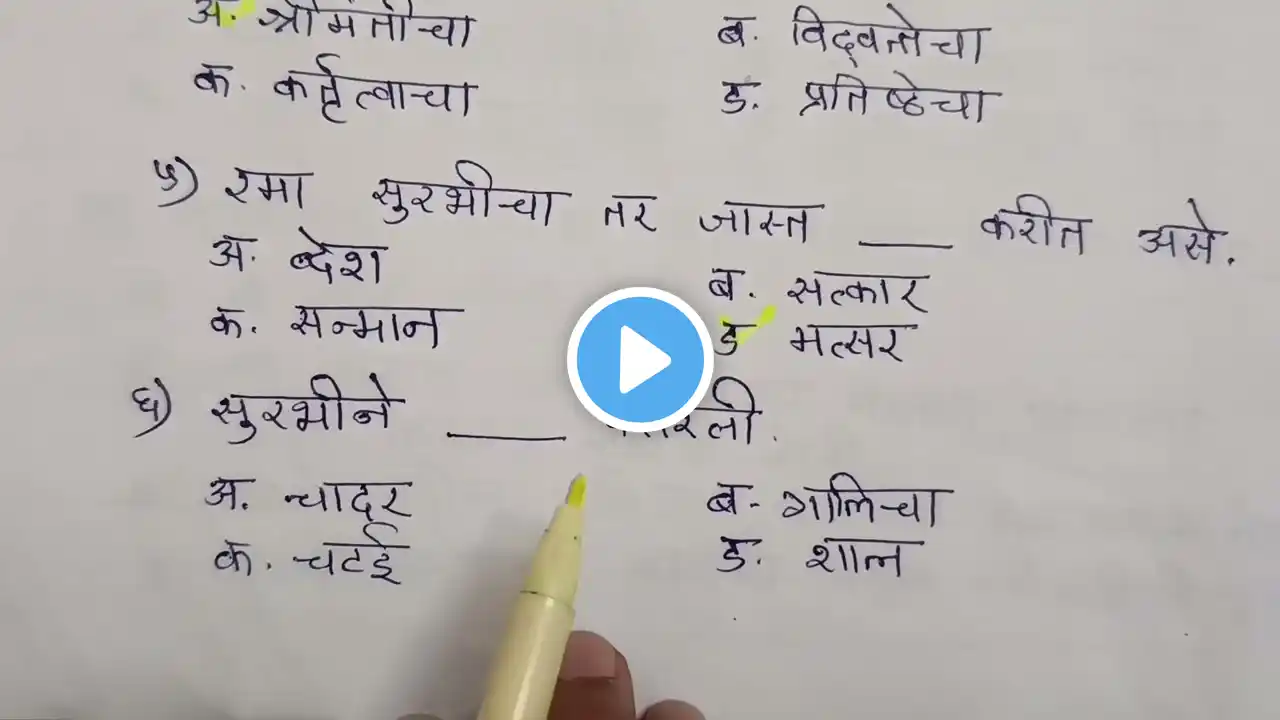 अ. श्रीमंतीचा ब. विद्वत्तेचा
क. कर्तृत्वाचा ड. प्रतिष्ठेचा
५) रमा सुरभीचा तर जास्त ___ करीत असे.
अ. द्वेश ब. सत्कार
क. सन्मान ड मत्सर
६) सुरभीने ___
अ. चादर ब. गालिचा
क. चटई ड. शाल